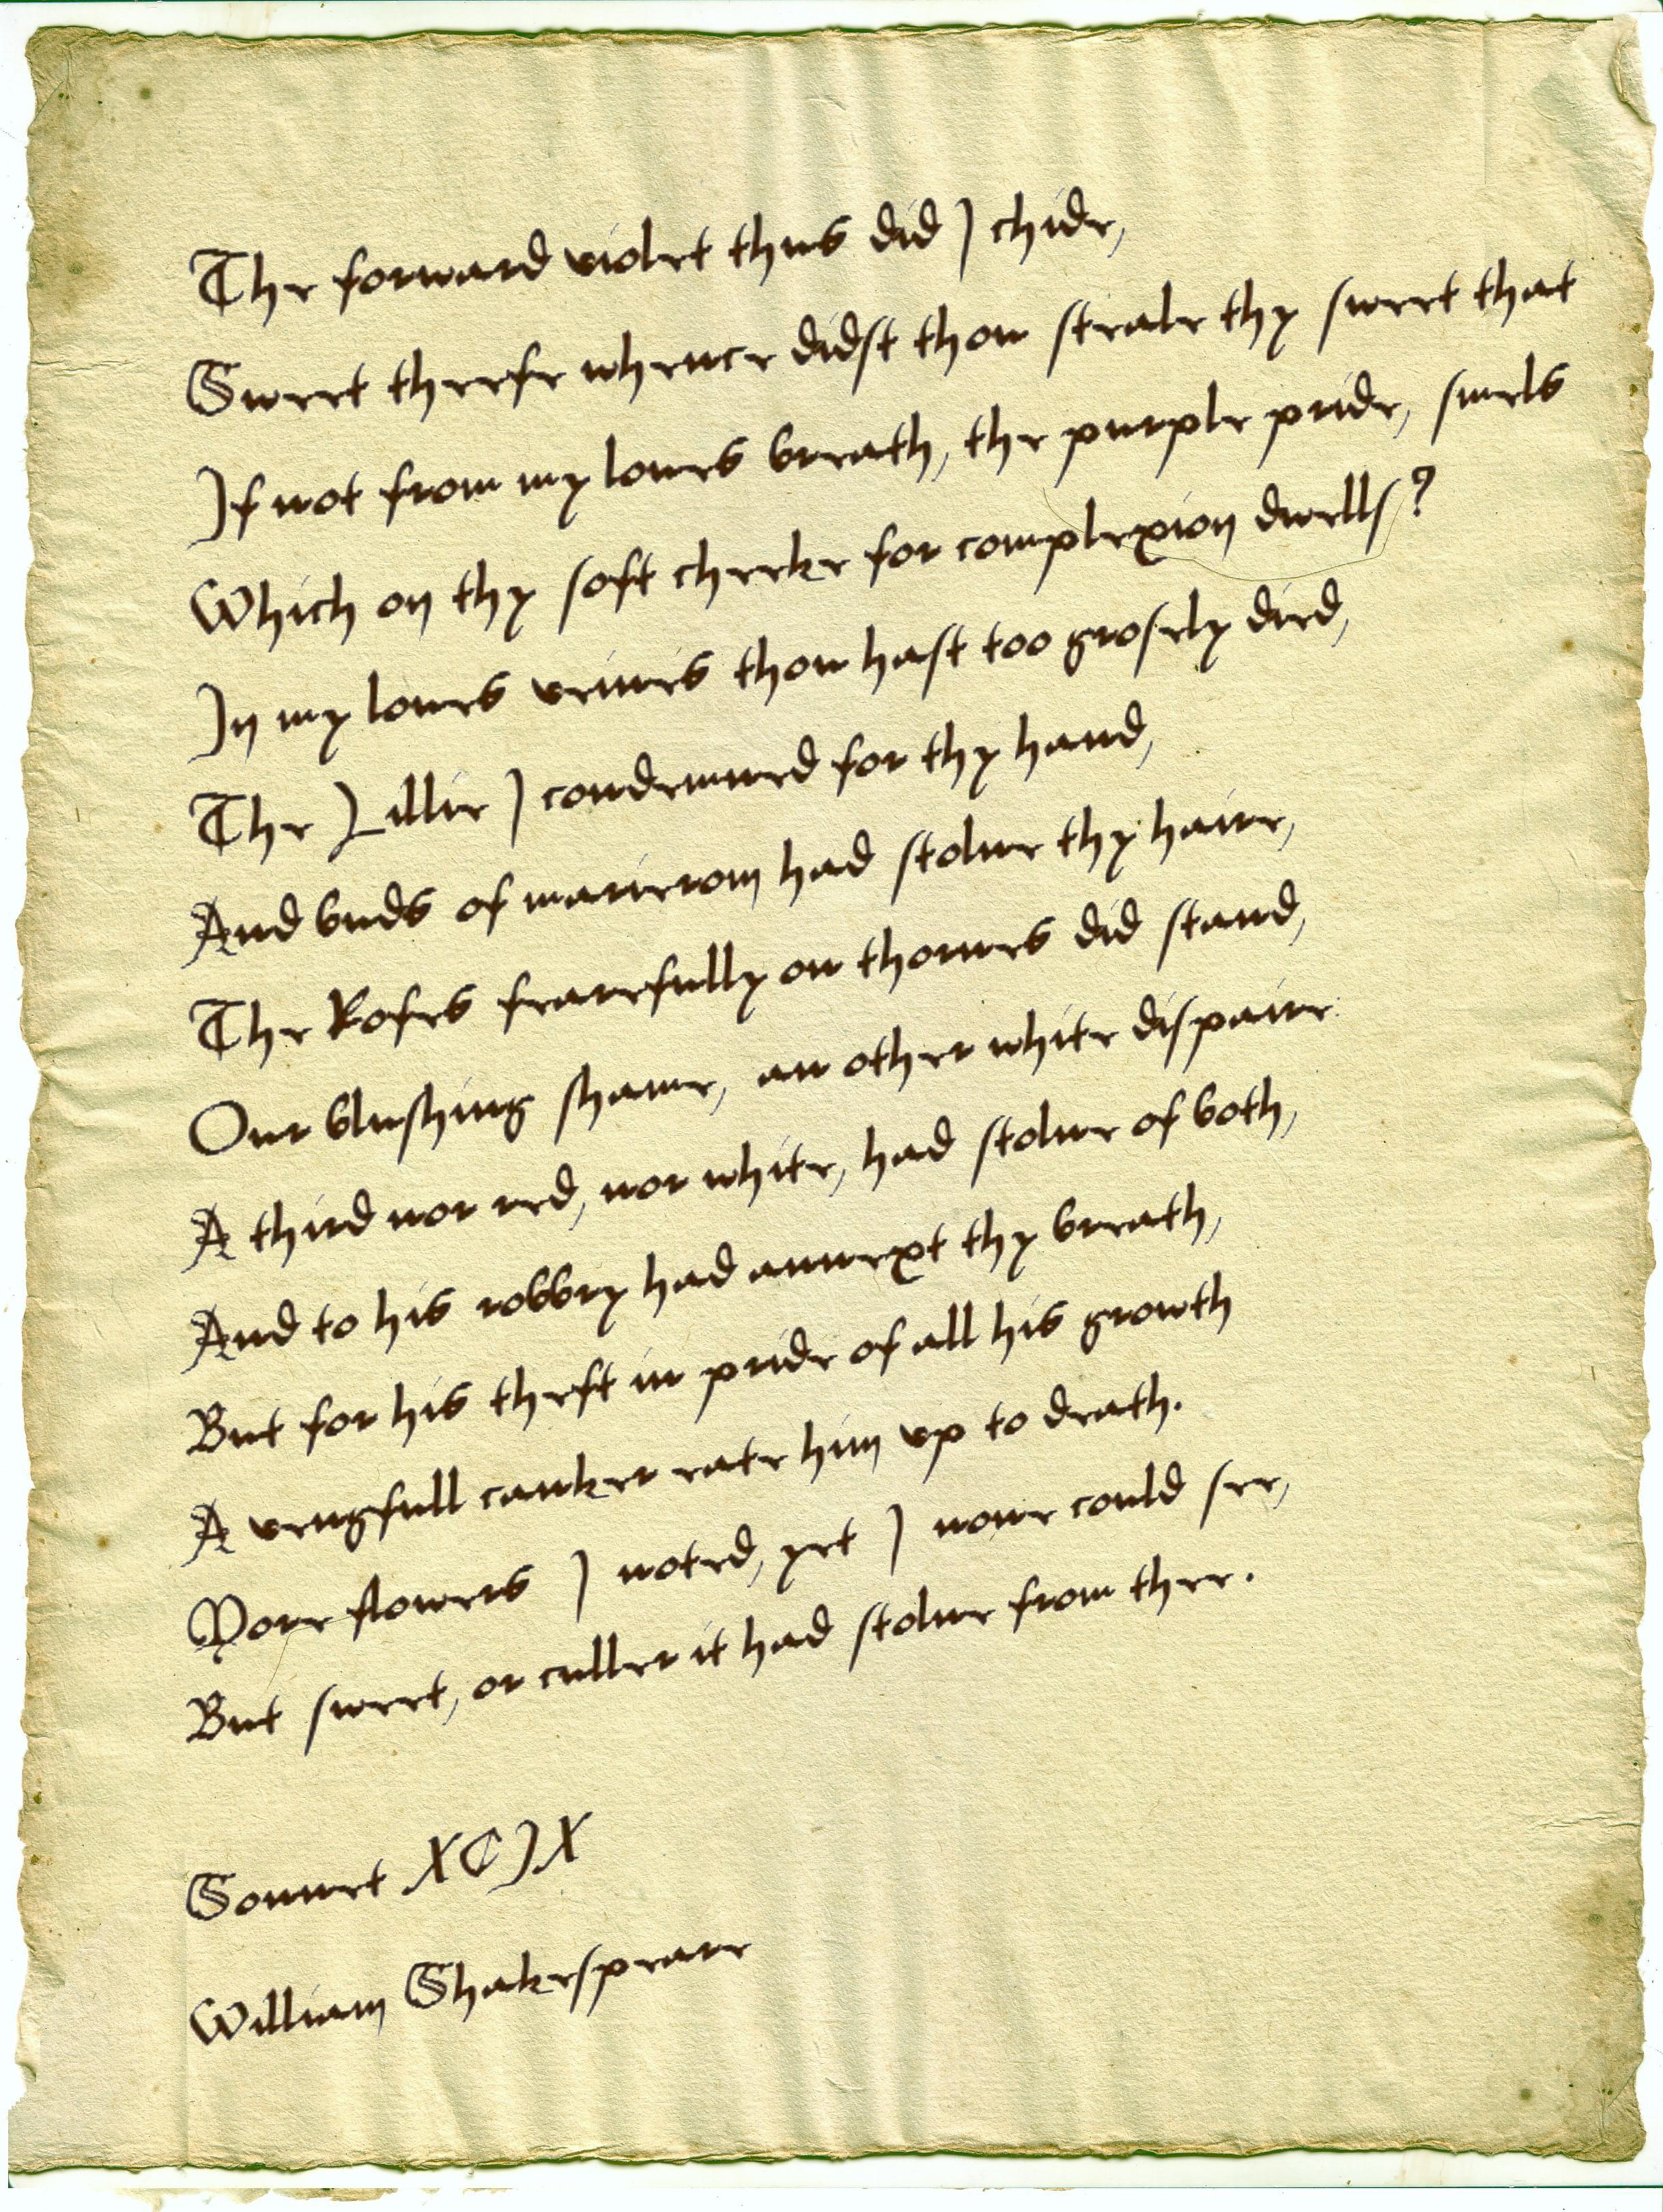 The forward violet thus did I chide,
Sweet theefe whence didst thou steale thy sweet that
If not from my loues breath, the purple pride, smels
Which on thy soft cheeke for complexion dwells?
In my loues veines thou hast too grosely died,
The Lillie I condemned for thy hand,
And buds of marierom had stolne thy haire,
The Rofes fearefully on thornes did stand,
Our blushing shame, an other white dispaire:
A third nor red, nor white, had stolne of both,
And to his robbry had annext thy breath,
But for his theft in pride of all his growth
A vengfull canker eate him vp to death.
More flowers I noted, yet I none could see,
But sweet, or culler it had stolne from thee.
Sonnet XCIX
William Shakespeare